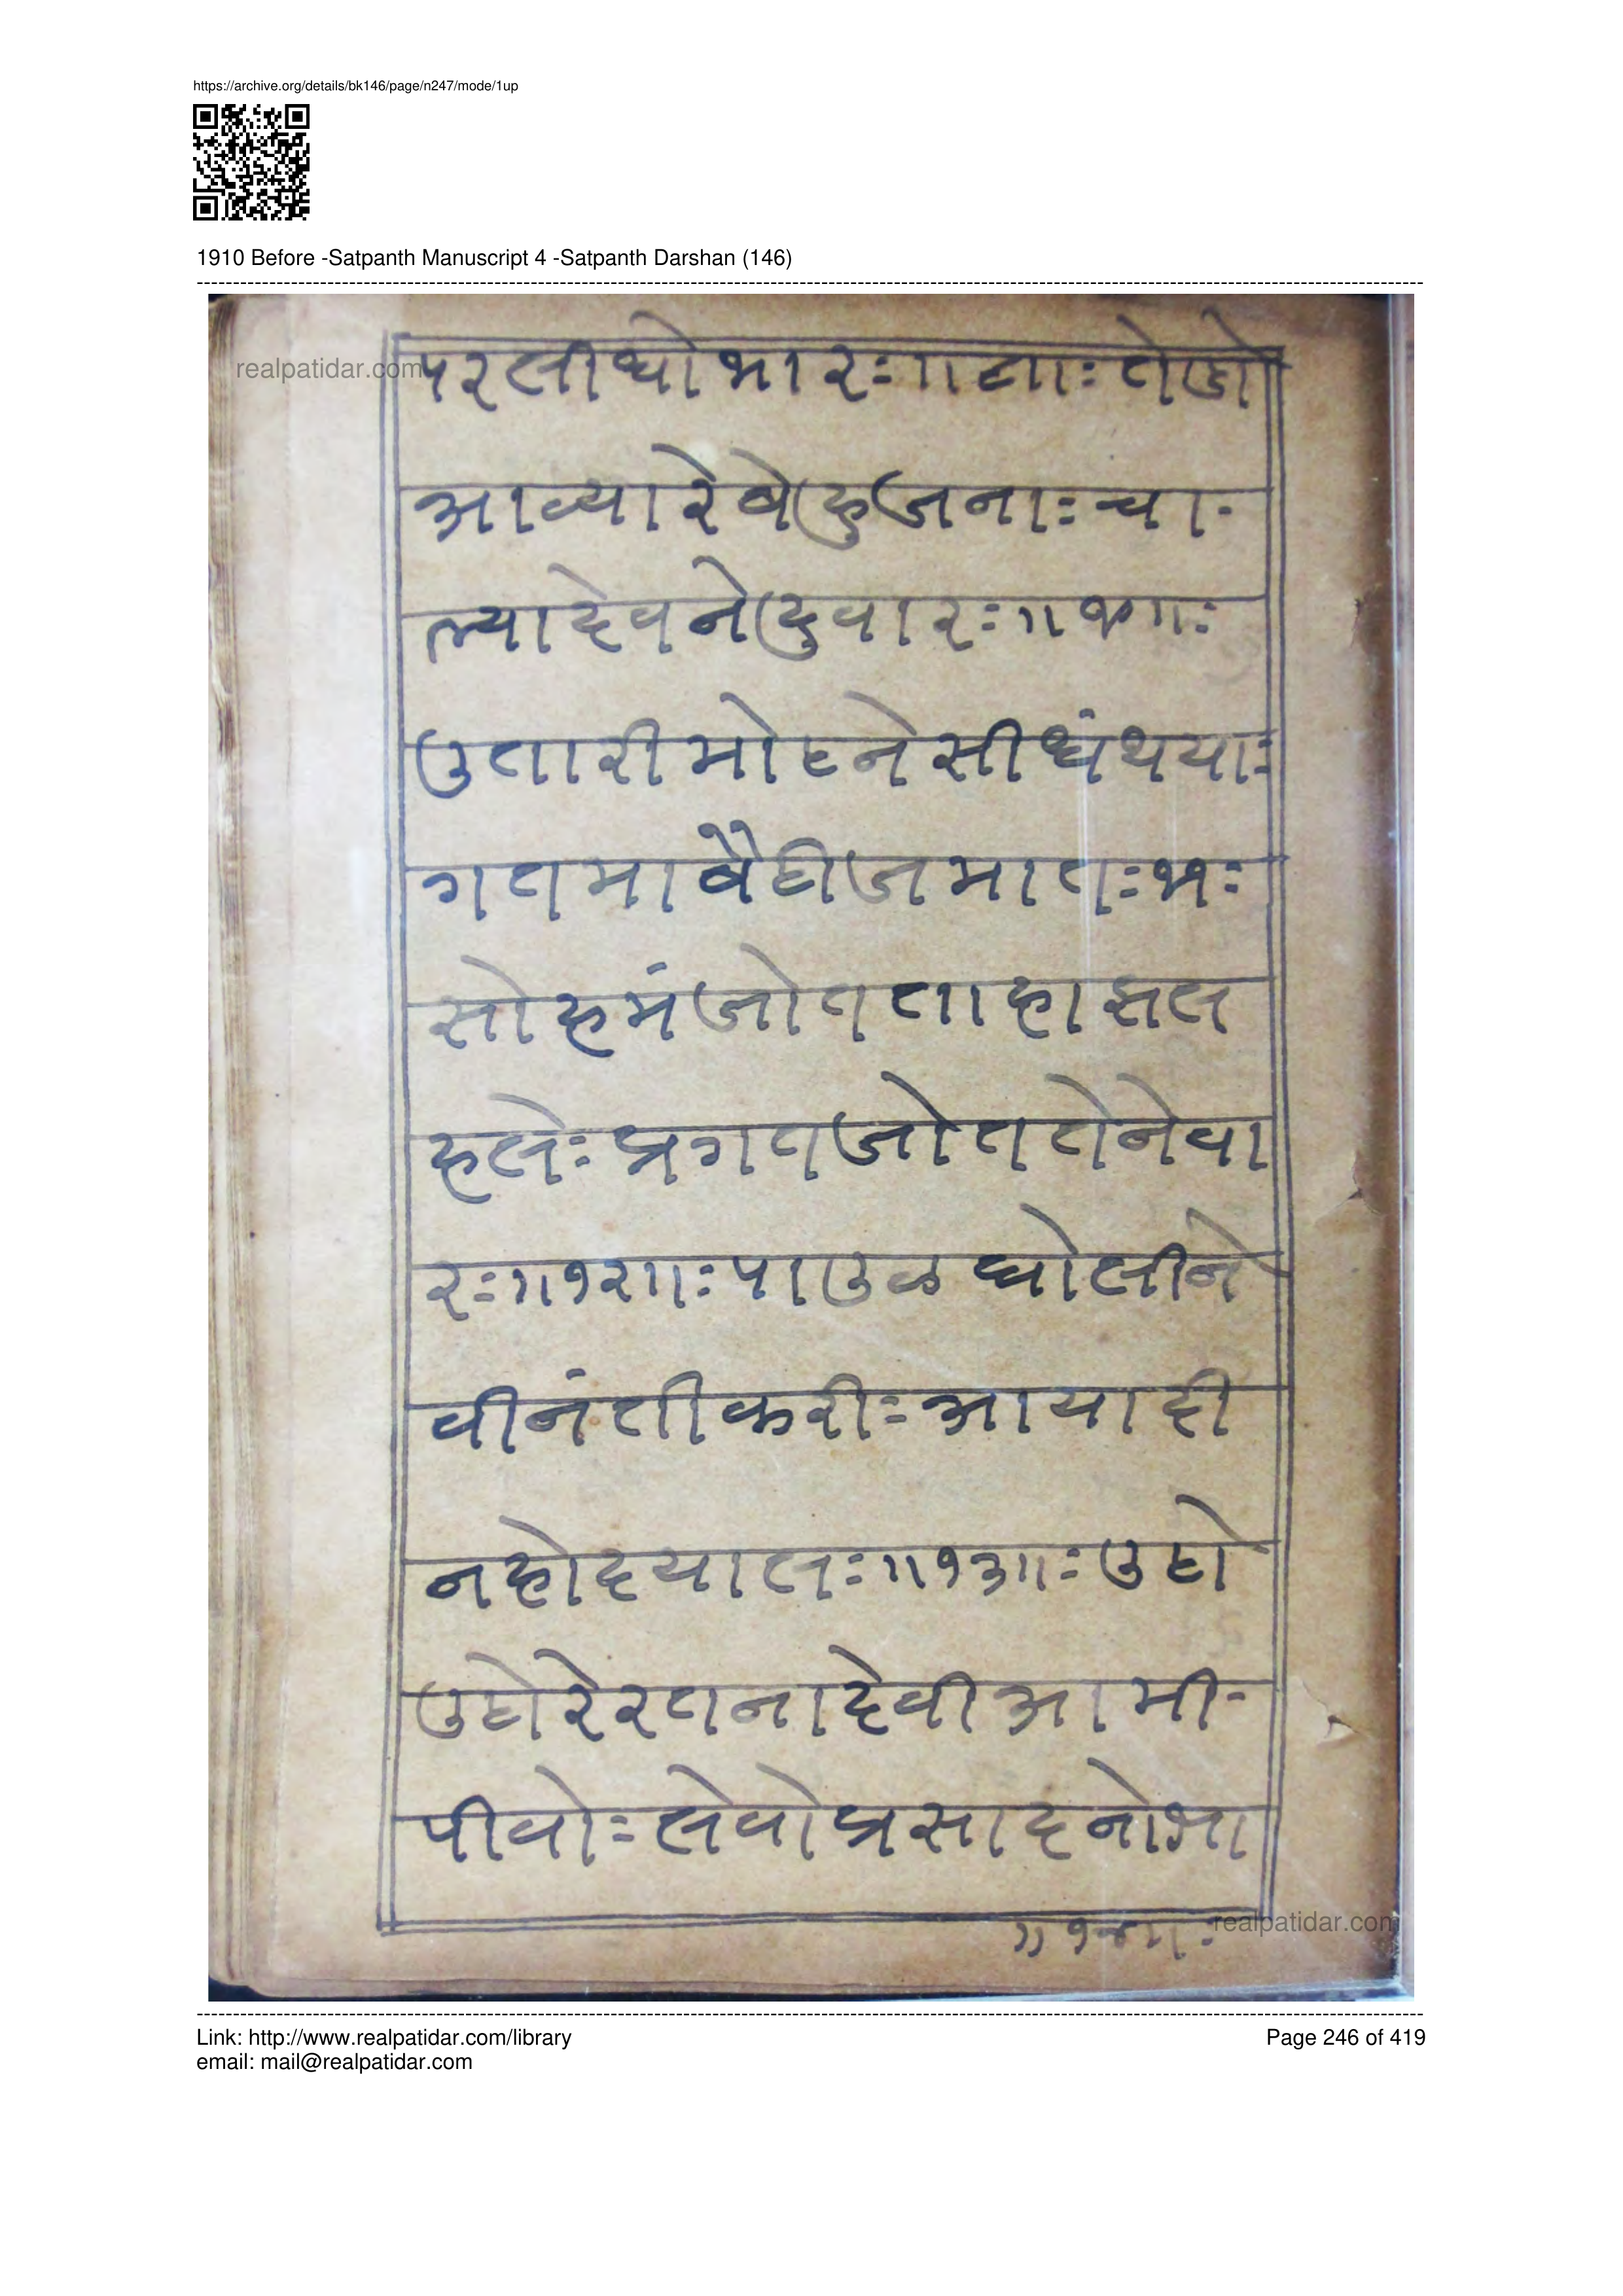 https://archive.org/details/bk146/page/n247/mode/1up
1910 Before -Satpanth Manuscript 4 -Satpanth Darshan (146)
realpatidar.com
परलीधोभारः॥
आव्यारेबेहुजनाः चा-
ल्यादेवनेदुवारः॥
उतारीमोहनेसीधंथयाः
गतमाबैठीजमातः
सोहमंजोतताहाझल
हलेः प्रगतजोततेनेवा
रः॥१२॥ः पाउळ घोलीने
वीनंतीकरीः आयाही
नहोदयालः॥१३॥ः उठो
उठोरेरतनादेवीआमी-
पीवोः लेवोप्रसादनोभा
॥१४॥ः
realpatidar.com
Link: http://www.realpatidar.com/library
Page 246 of 419
email: mail@realpatidar.com